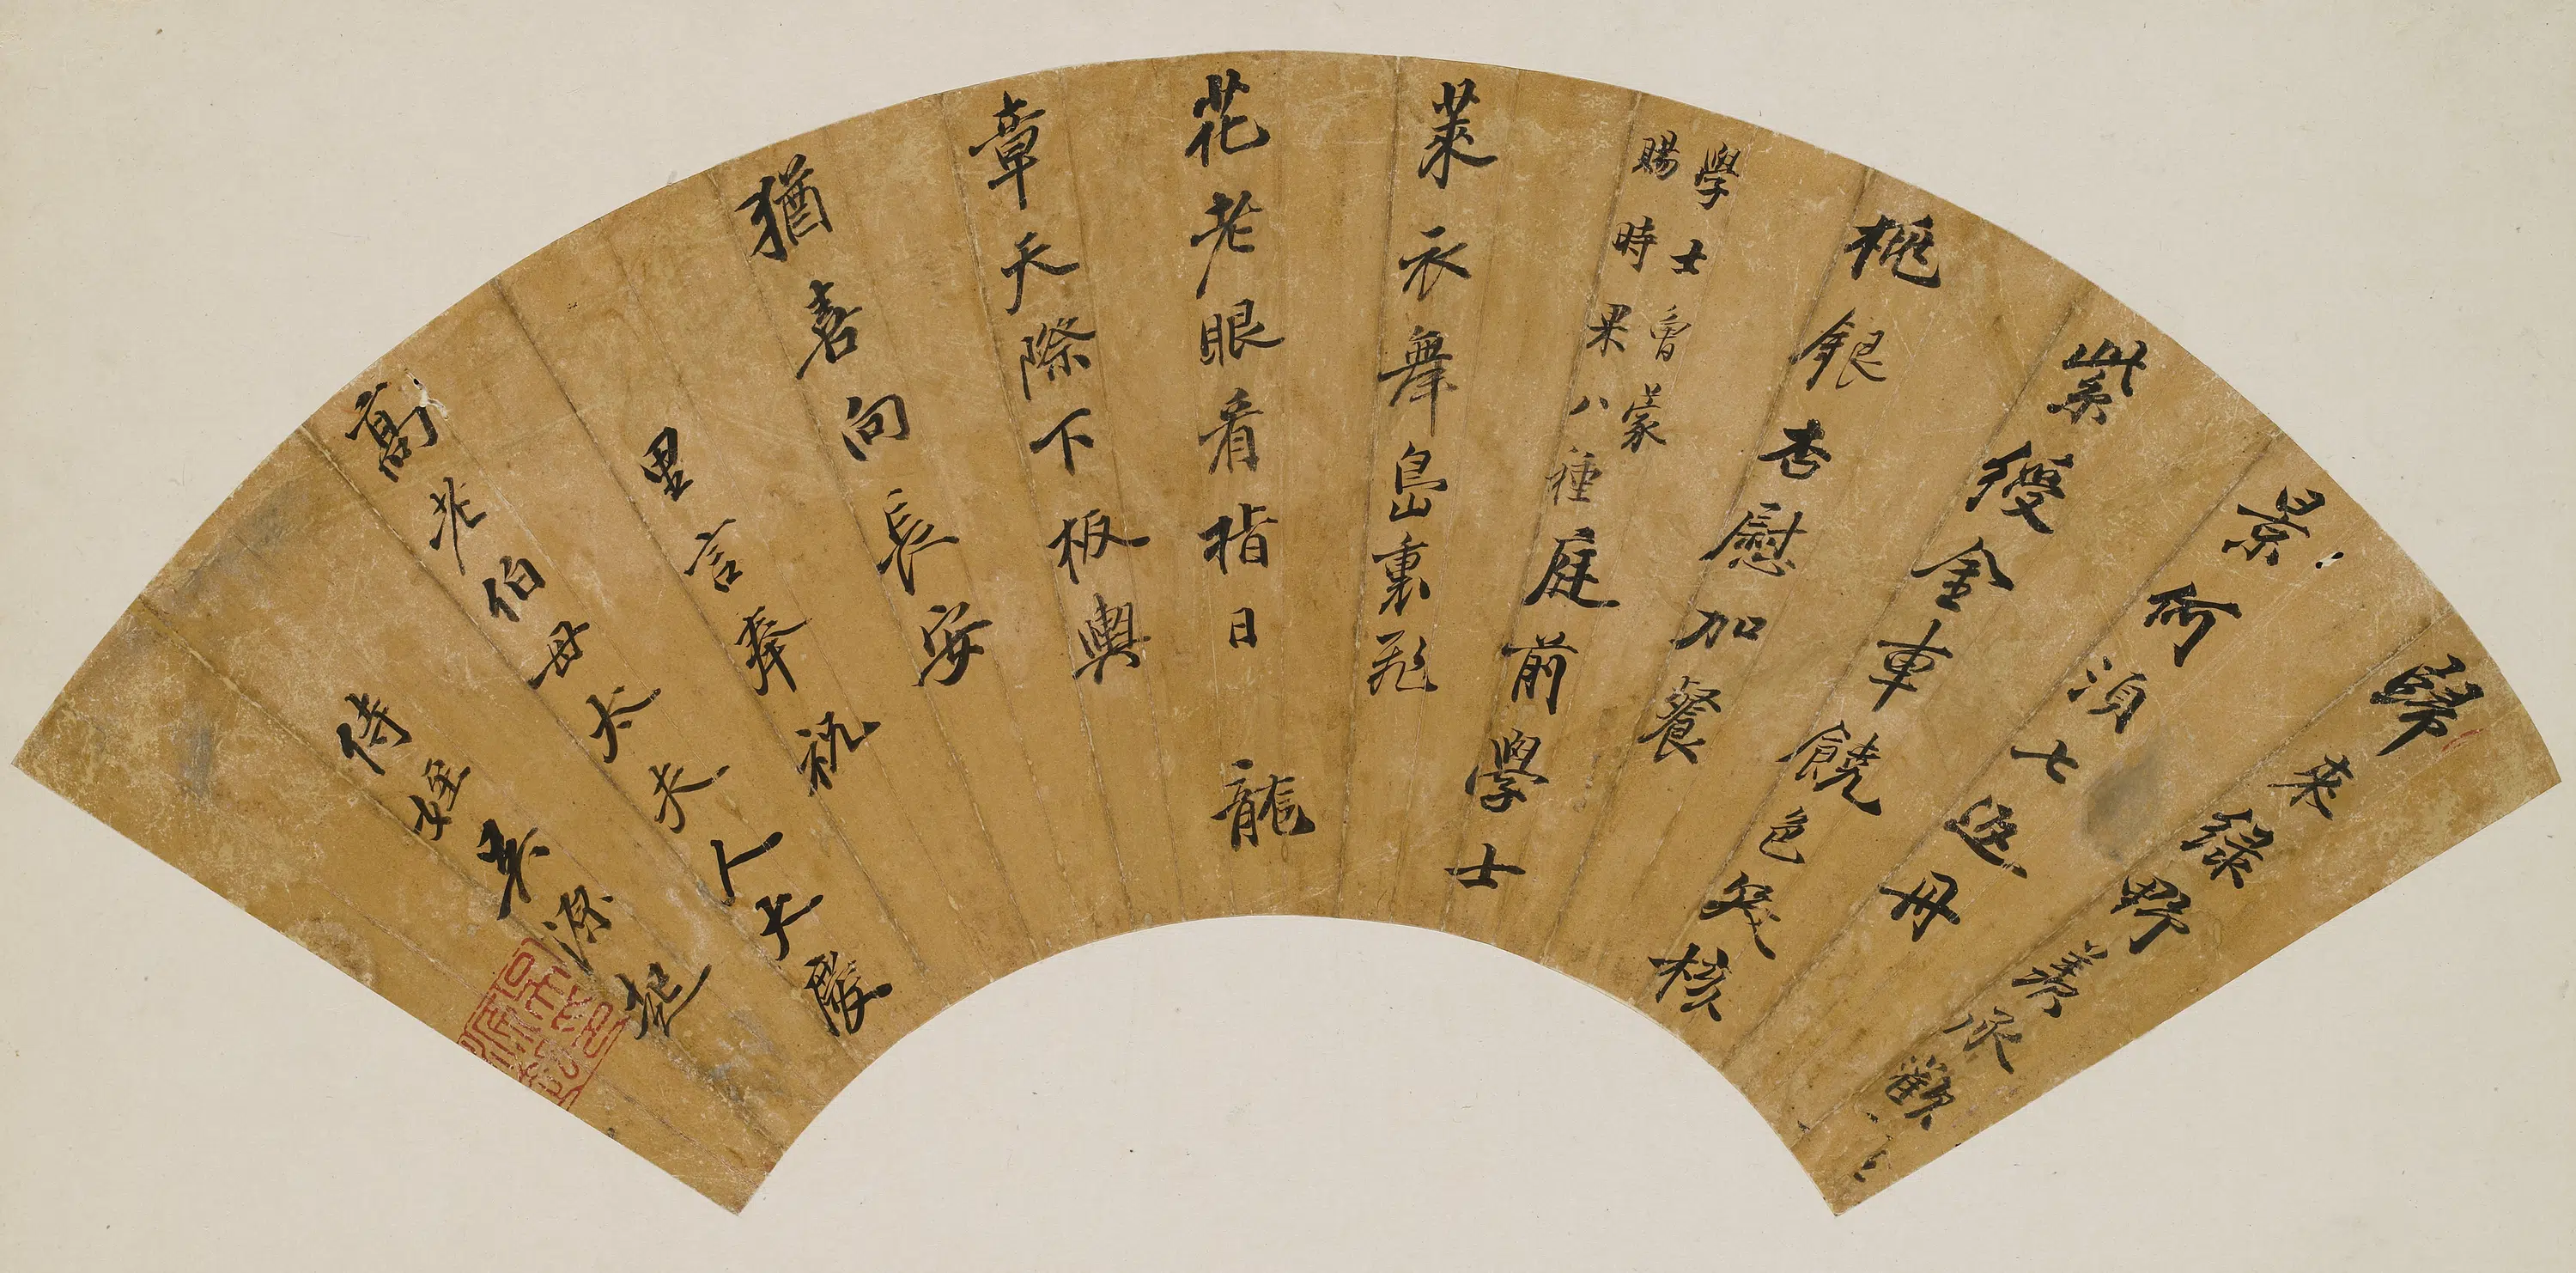 歸來綠野羡承歡
景何須七返丹
紫綬金車饒色笑核
桃銀杏慰加餐
學士曾蒙
賜時果八種
庭前學士
萊衣舞島裏飛
花老眼看指日龍
章天際下板輿
猶喜向長安
里言奉祝
高老伯母太夫人大慶
侍姪源起